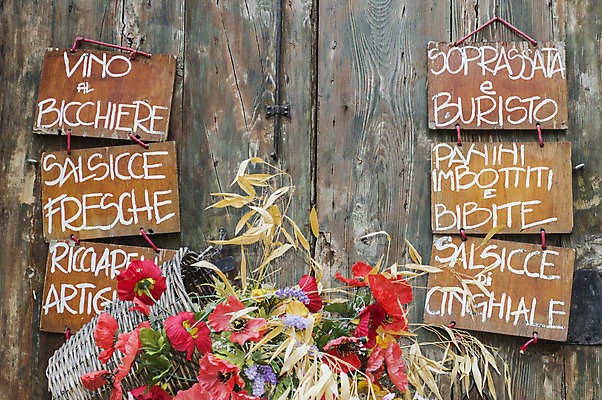 VINO
AL
BICCHIERE
SALSICCE
FRESCHE
RICCIARE
ARTIG
SOPRASSATA
e
BURISTO
PANINI
IMBOTTITI
E
BIBITE
SALSICCE
di
CINGHIALE